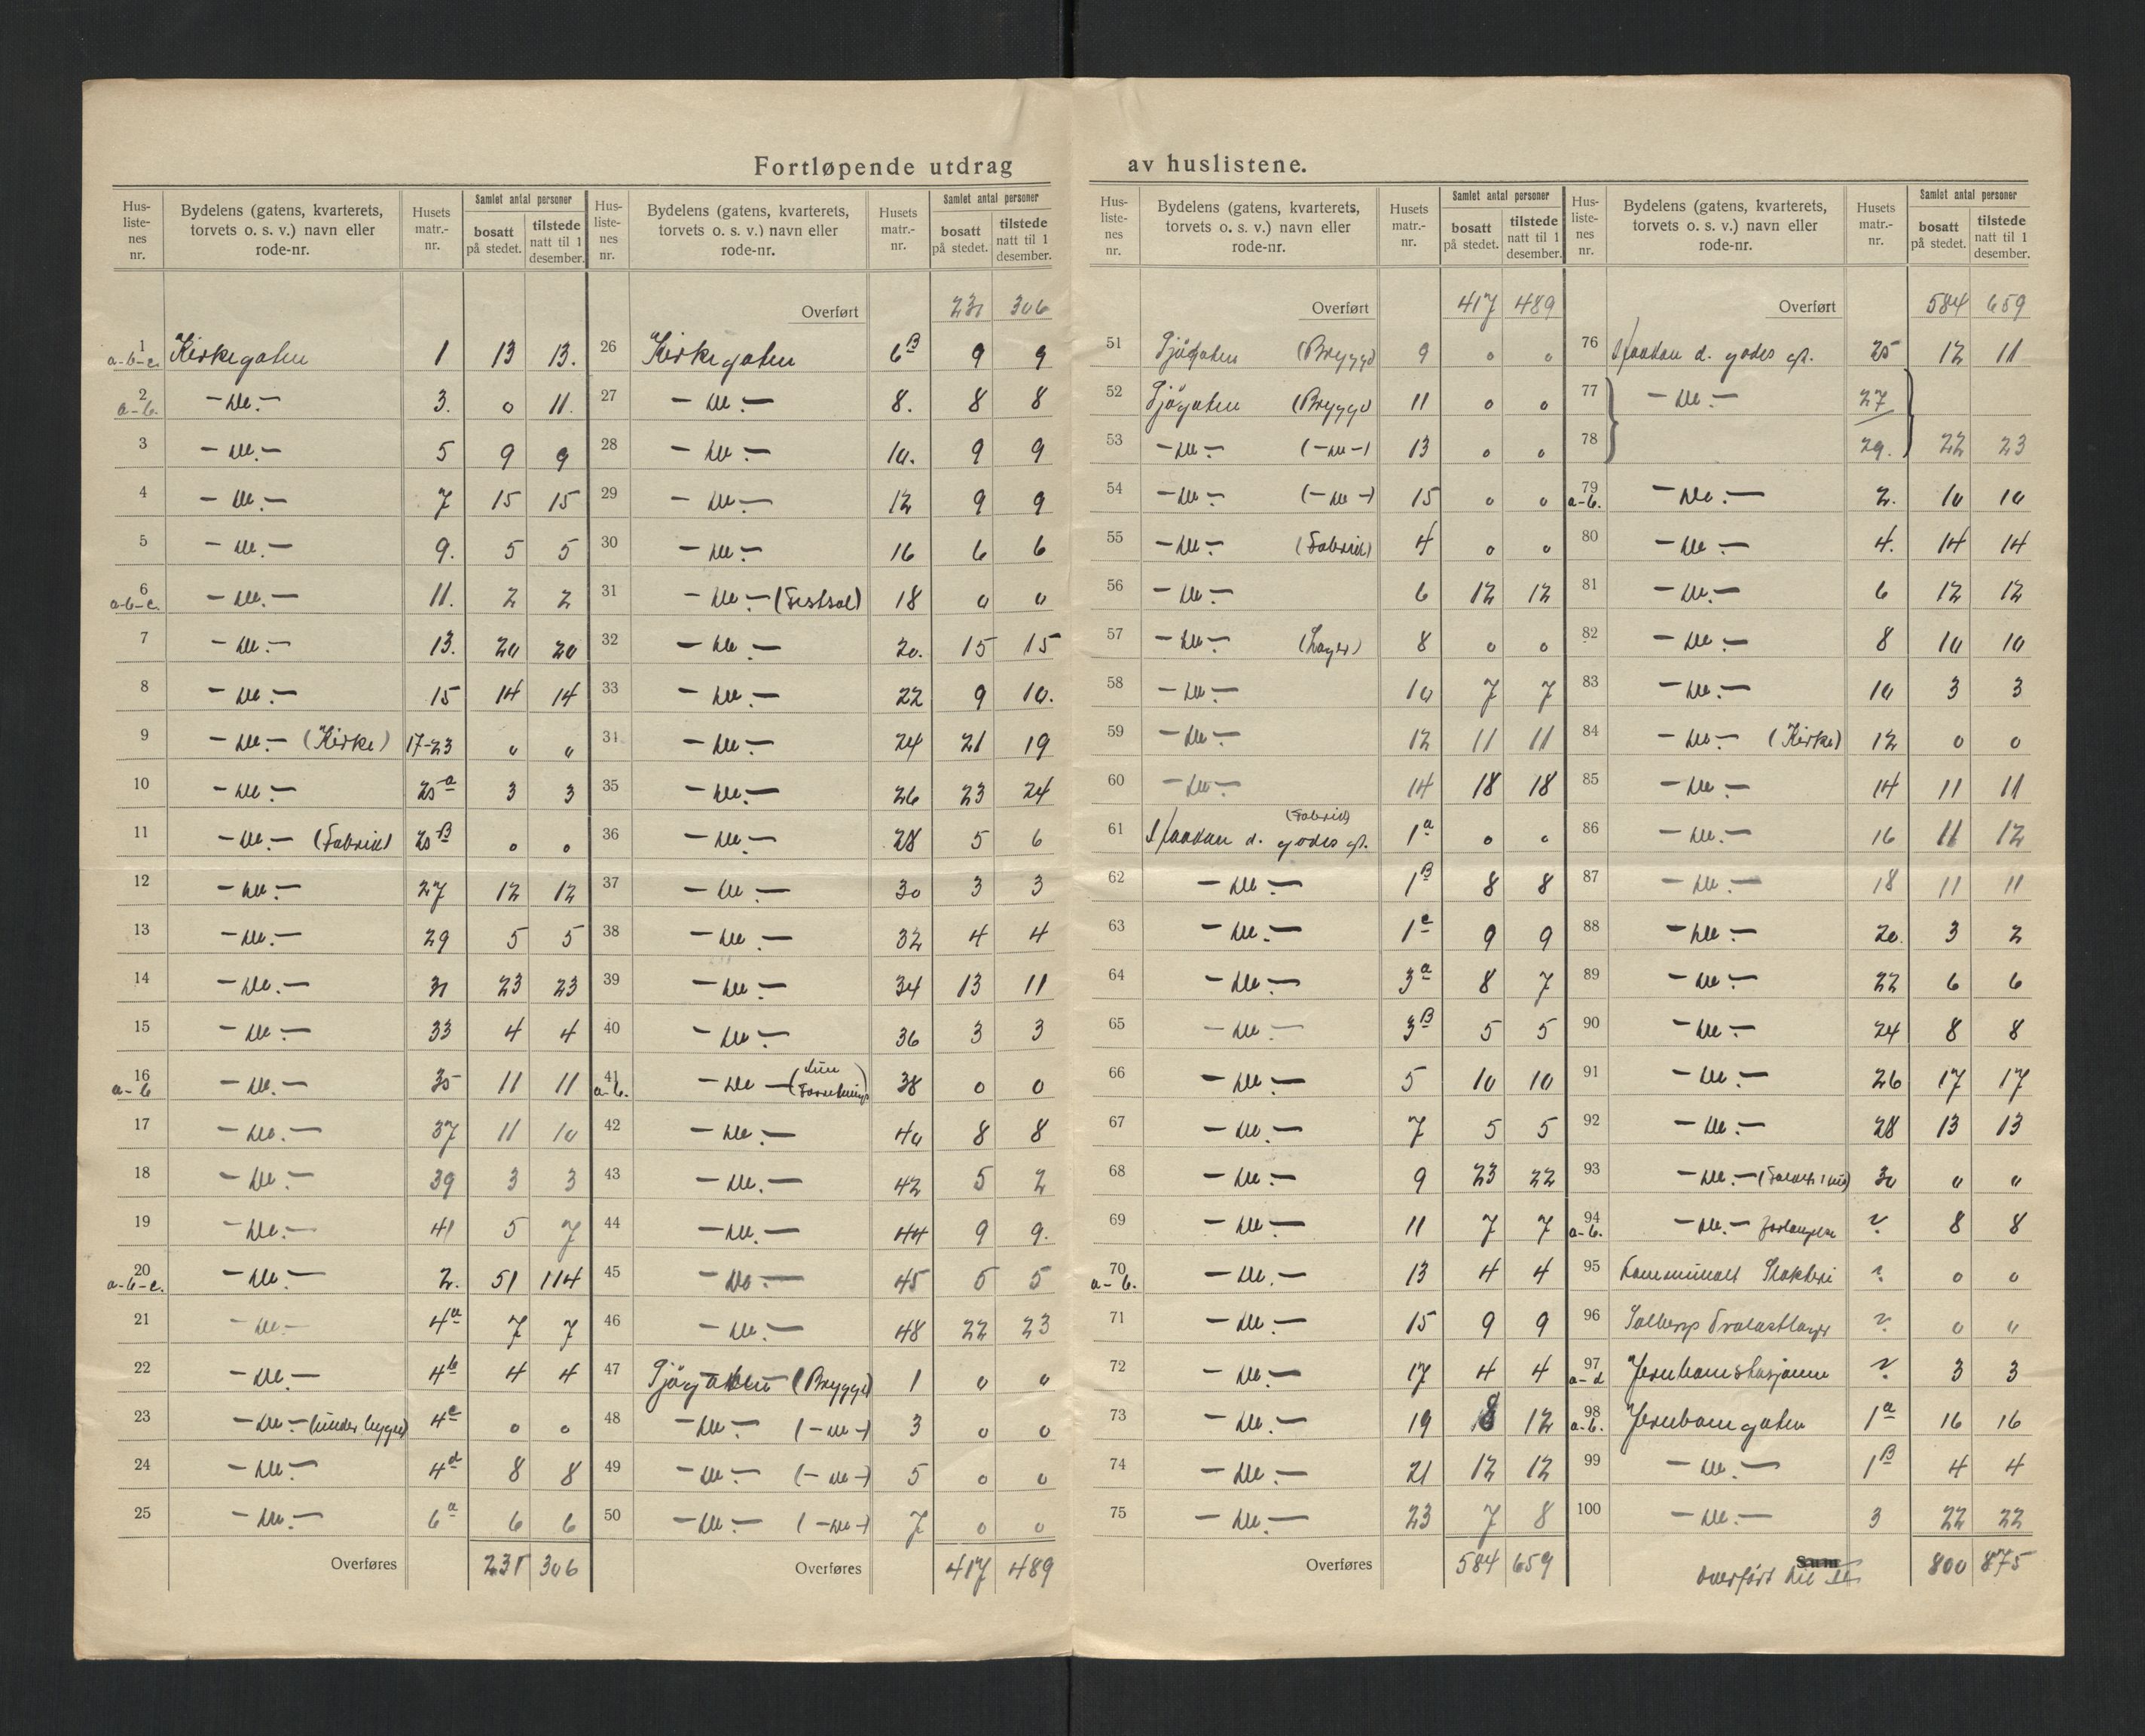 Fortløpende utdrag av huslistene.
Hus-listenes nr. | Bydelens (gatens, kvarterets, torvets o. s. v.) navn eller rode-nr. | Husets matr.-nr. | Samlet antal personer bosatt på stedet. | tilstede natt til 1 desember.
1 a-b-c. Kirkegaten 1 13 13.
2 a-b. -do.- 3. 0 11.
3 -do.- 5 9 9
4 -do.- 7 15 15
5 -do.- 9. 5 5
6 a-b-c. -do.- 11. 2 2
7 -do.- 13. 20 20
8 -do.- 15 14 14
9 -do.- (Kirke) 17-23 0 0
10 -do.- 25a 3 3
11 -do.- (Fabrik) 25B 0 0
12 -do.- 27 12 12
13 -do.- 29 5 5
14 -do.- 31 23 23
15 -do.- 33 4 4
16 a-b -do.- 35 11 11
17 -do.- 37 11 10
18 -do.- 39 3 3
19 -do.- 41 5 7
20 a-b-c. -do.- 2. 51 114
21 -do.- 4a 7 7
22 -do.- 4b 4 4
23 -do.- (under bygge) 4c 0 0
24 -do.- 4d 8 8
25 -do.- 6a 6 6
Overføres 231 306
Hus-listenes nr. | Bydelens (gatens, kvarterets, torvets o. s. v.) navn eller rode-nr. | Husets matr.-nr. | Samlet antal personer bosatt på stedet. | tilstede natt til 1 desember.
Overført 231 306
26 Kirkegaten 6B 9 9
27 -do.- 8. 8 8
28 -do.- 10. 9 9
29 -do.- 12 9 9
30 -do.- 16 6 6
31 -do.- (Festsal) 18 0 0
32 -do.- 20. 15 15
33 -do.- 22 9 10.
34 -do.- 24 21 19
35 -do.- 26 23 24
36 -do.- 28 5 6
37 -do.- 30 3 3
38 -do.- 32 4 4
39 -do.- 34 13 11
40 -do.- 36 3 3
41 a-b. -do- 38 0 0
42 -do.- 40 8 8
43 -do.- 42 5 2
44 -do.- 44 9 9.
45 -do- 45 5 5
46 -do.- 48 22 23
47 Sjögaten (Brygge) 1 0 0
48 -do.- (-do-) 3 0 0
49 -do.- (-do-) 5 0 0
50 -do.- (-do-) 7 0 0
Overføres 417 489
Hus-listenes nr. | Bydelens (gatens, kvarterets, torvets o. s. v.) navn eller rode-nr. | Husets matr.-nr. | Samlet antal personer bosatt på stedet. | tilstede natt til 1 desember.
Overført 417 489
51 Sjögaten (Brygge) 9 0 0
52 Sjögaten (Brygge) 11 0 0
53 -do.- (-do-) 13 0 0
54 -do.- (-do-) 15 0 0
55 -do.- (Fabrik) 4 0 0
56 -do.- 6 12 12
57 -do.- (Lager) 8 0 0
58 -do.- 10 7 7
59 -do.- 12 11 11
60 -do.- 14 18 18
61 Haakon d. godes gt. (Fabrik) 1a 0 0
62 -do.- 1B 8 8
63 -do.- 1c 9 9
64 -do.- 3a 8 7
65 -do.- 3B 5 5
66 -do.- 5 10 10
67 -do.- 7 5 5
68 -do.- 9 23 22
69 -do.- 11 7 7
70 a-b. -do.- 13 4 4
71 -do.- 15 9 9
72 -do.- 17 4 4
73 -do.- 19 8 12
74 -do.- 21 12 12
75 -do.- 23 7 8
Overføres 584 659
Hus-listenes nr. | Bydelens (gatens, kvarterets, torvets o. s. v.) navn eller rode-nr. | Husets matr.-nr. | Samlet antal personer bosatt på stedet. | tilstede natt til 1 desember.
Overført 584 659
76 Haakon d. godes gt. 25 12 11
77 -do.- 27
78 29. 22 23
79 a-b. -do.- 2. 10 10
80 -do.- 4. 14 14
81 -do.- 6 12 12
82 -do.- 8 10 10
83 -do.- 10 3 3
84 -do.- (Kirke) 12 0 0
85 -do.- 14 11 11
86 -do.- 16 11 12
87 -do.- 18 11 11
88 -do.- 20. 3 2
89 -do.- 22 6 6
90 -do.- 24 8 8
91 -do.- 26 17 17
92 -do.- 28 13 13
93 -do.- 30 0 0
94 a-b. -do.- forlengelse ? 8 8
95 Kommunalt Slakteri ? 0 0
96 ? 0 0
97 a-d Jernbanestasjonen ? 3 3
98 a-b. Jernbanegaten 1a 16 16
99 -do.- 1B 4 4
100 -do.- 3 22 22
Sum overført til II 800 875